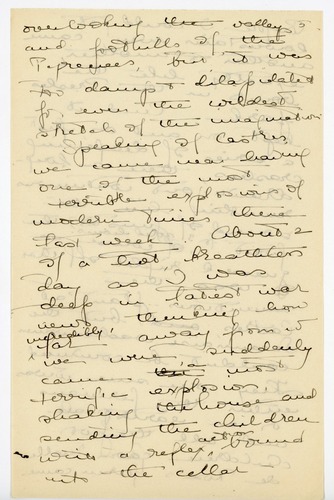 overlooking the valleys
and foothills of the
Pyrenees, but it was
too damp & dilapidated
for even the wildest
stretch of the imagination
Speaking of Castres,
we came near having
one of the most
terrible explosions of
modern times there
last week. About 2
of a hot breathless
day as I was
deep in latest war
news thinking how
incredibly far away from it
we were, suddenly
came a most
terrific explosion
shaking the house and
sending the children
with a reflex action bound
into the cellar